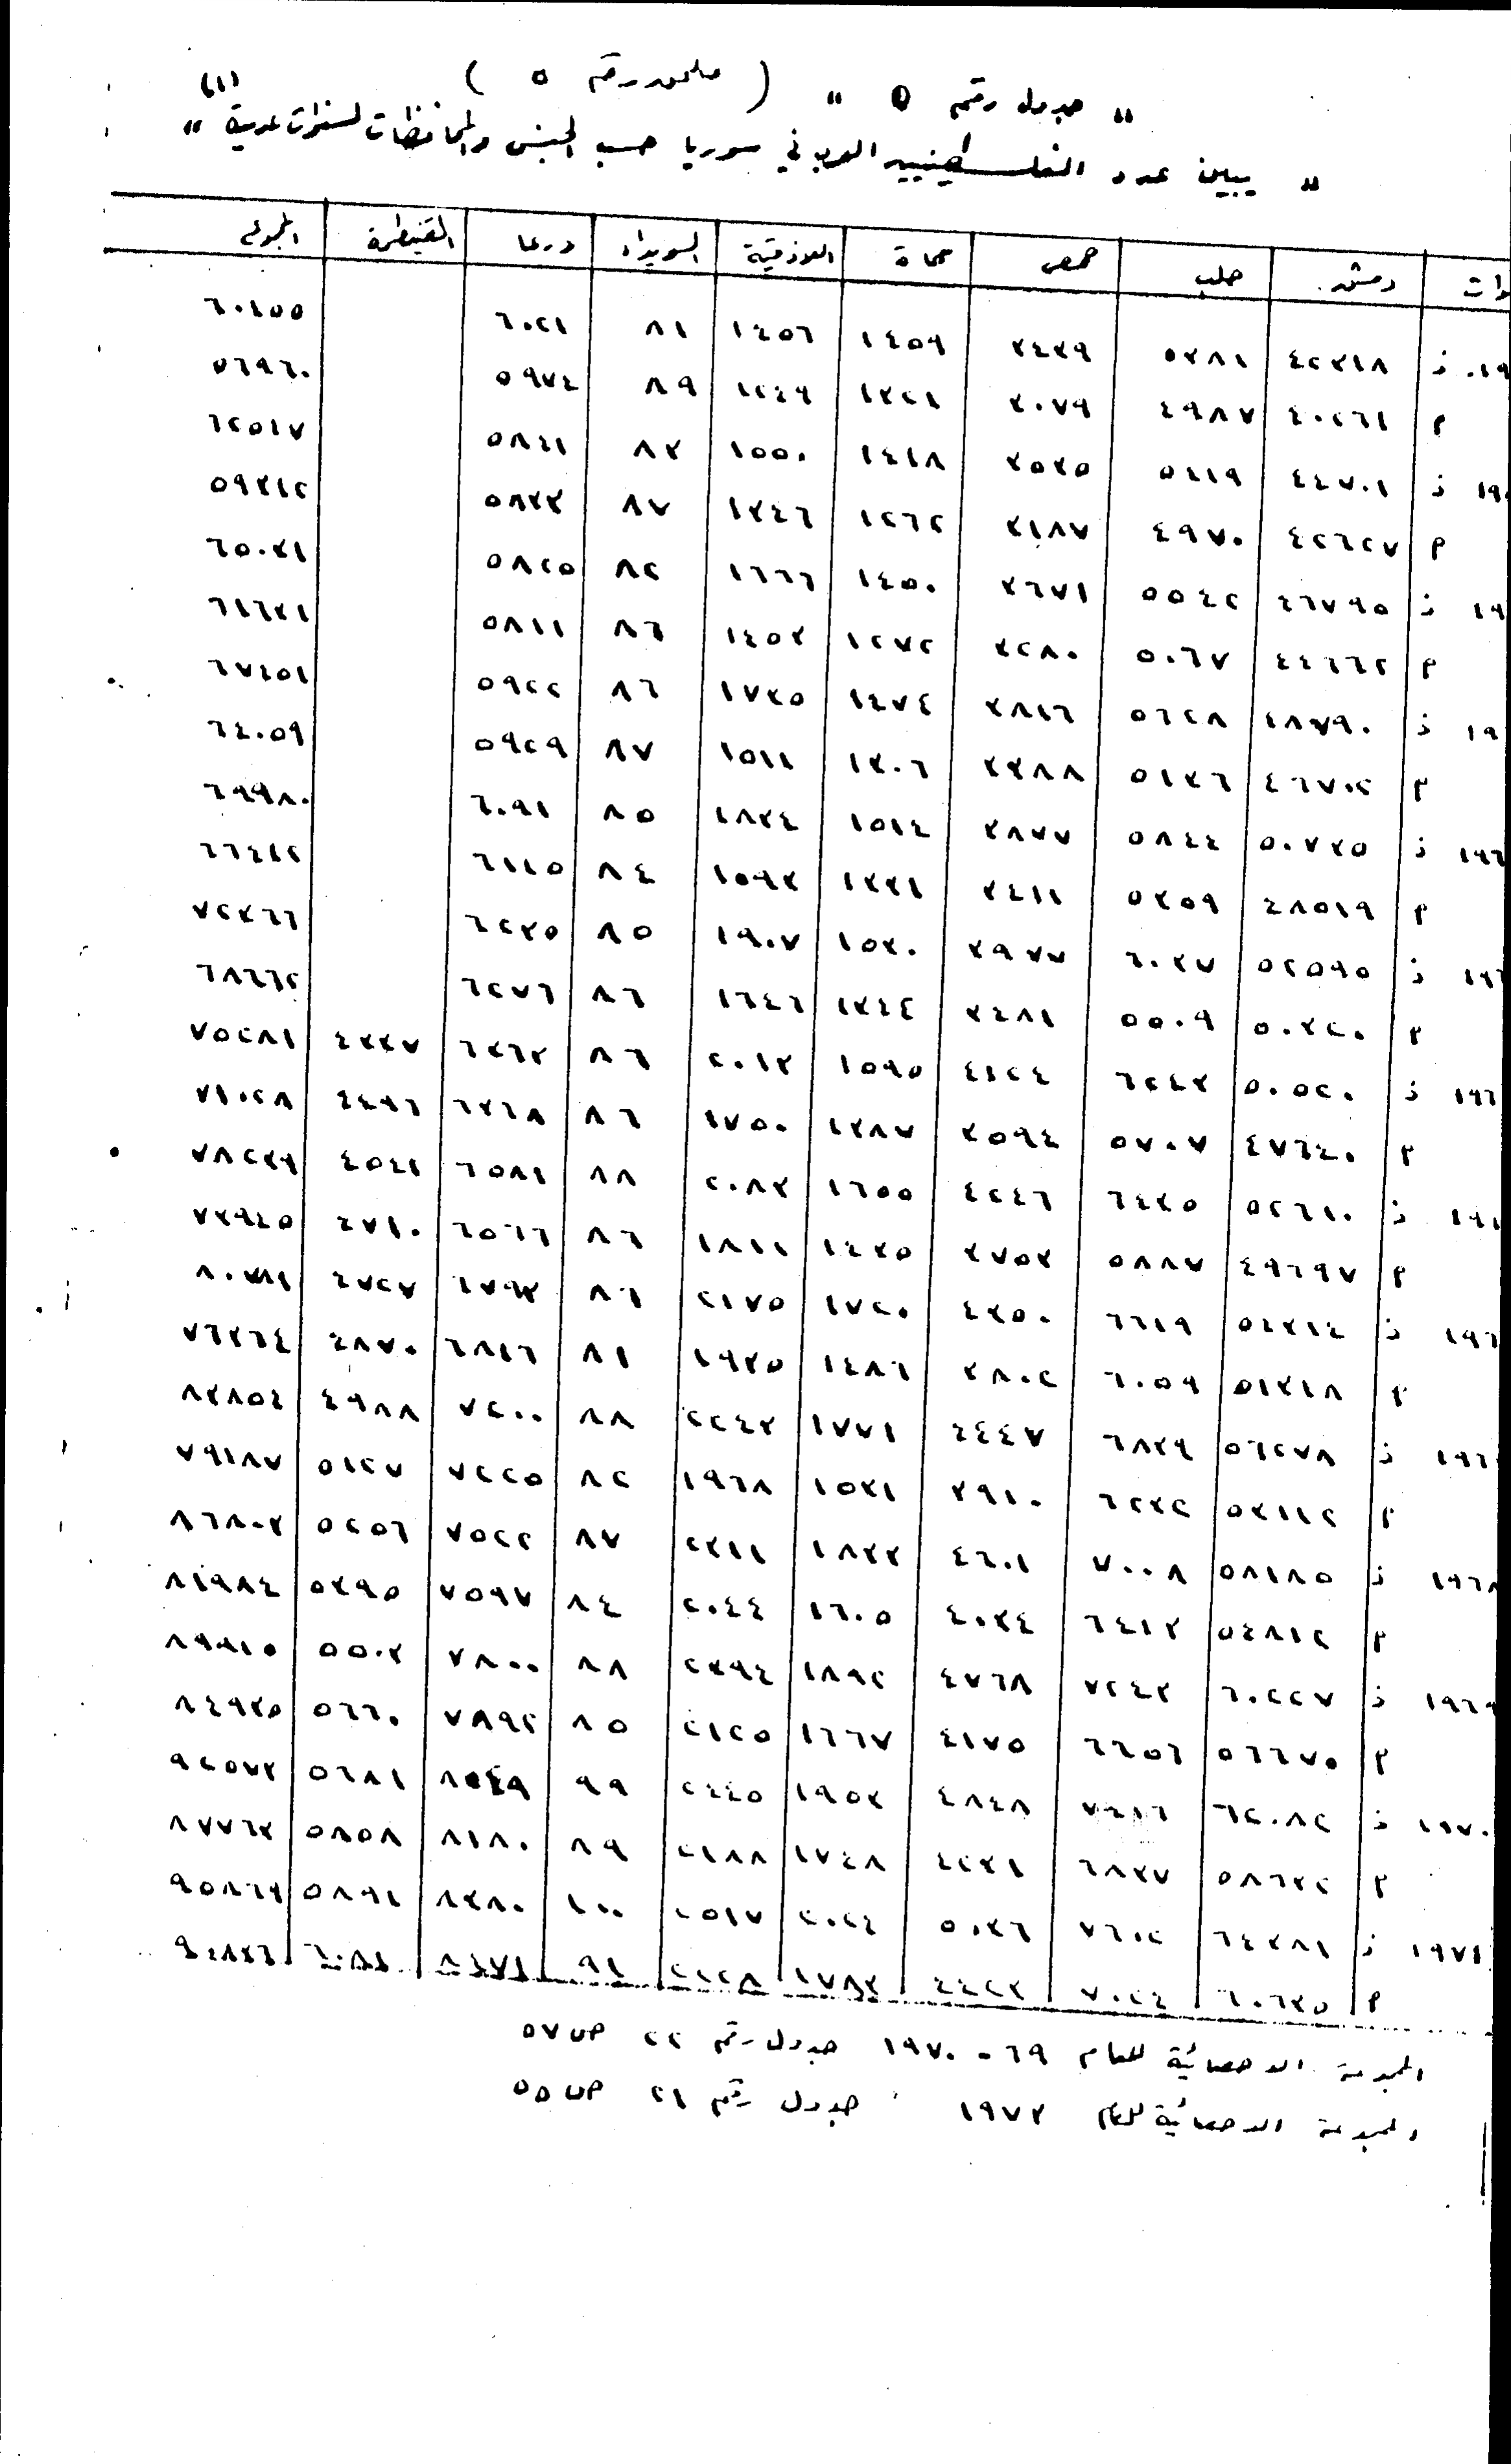 " جدول رقم ٥ " ( ملحق رقم ٥ )
" يبين عدد الفلسطينيين العرب في سوريا حسب الجنس والمحافظات لسنوات عدية " (١)
وات دمشق حلب حمص حماة اللاذقية السويداء درعا القنيطرة المجموع
١٩ ذ ٤٢٣١٨ ٥٣٨١ ٣٤٣٩ ١٤٥٩ ١٤٥٦ ٨١ ٦٠٢١ ٦٠١٥٥
م ٤٠٢٦١ ٤٩٨٧ ٣٠٧٩ ١٣٢١ ١٢٤٩ ٨٩ ٥٩٧٤ ٥٦٩٦٠
١٩ ذ ٤٤٧٠١ ٥٤١٩ ٣٥٣٥ ١٤١٨ ١٥٥٠ ٨٣ ٥٨٤١ ٦٢٥١٧
م ٤٢٦٢٧ ٤٩٧٠ ٣١٨٧ ١٢٦٢ ١٣٤٦ ٨٧ ٥٨٣٣ ٥٩٣١٢
١٩ ذ ٤٦٧٩٥ ٥٥٤٢ ٣٦٧١ ١٤٥٠ ١٦٦٦ ٨٢ ٥٨٢٥ ٦٥٠٣١
م ٤٤٦٦٢ ٥٠٦٧ ٣٢٨٠ ١٢٧٢ ١٤٥٣ ٨٦ ٥٨١١ ٦١٦٣١
١٩ ذ ٤٨٧٩٠ ٥٦٢٨ ٣٨١٦ ١٤٧٤ ١٧٣٥ ٨٦ ٥٩٢٢ ٦٧٤٥١
م ٤٦٧٠٢ ٥١٣٦ ٣٣٨٨ ١٣٠٦ ١٥١١ ٨٧ ٥٩٢٩ ٦٤٠٥٩
١٩٦ ذ ٥٠٧٣٥ ٥٨٤٤ ٣٨٧٧ ١٥١٤ ١٨٣٤ ٨٥ ٦٠٩١ ٦٩٩٨٠
م ٤٨٥١٩ ٥٣٥٩ ٣٤١١ ١٣٣١ ١٥٩٣ ٨٤ ٦١١٥ ٦٦٤١٢
١٩٦ ذ ٥٢٥٩٥ ٦٠٣٧ ٣٩٧٧ ١٥٣٠ ١٩٠٧ ٨٥ ٦٢٣٥ ٧٢٣٦٦
م ٥٠٣٢٠ ٥٥٠٩ ٣٤٨١ ١٣٤٤ ١٦٤٦ ٨٦ ٦٢٧٦ ٦٨٦٦٢
١٩٦ ذ ٥٠٥٢٠ ٦٢٤٣ ٤١٢٤ ١٥٩٥ ٢٠١٣ ٨٦ ٦٣٦٣ ٤٣٣٧ ٧٥٢٨١
م ٤٧٦٤٠ ٥٧٠٧ ٣٥٩٤ ١٣٨٧ ١٧٥٠ ٨٦ ٦٣٦٨ ٤٤٩٦ ٧١٠٢٨
١٩٦ ذ ٥٢٦١٠ ٦٤٣٥ ٤٢٤٦ ١٦٥٥ ٢٠٨٣ ٨٨ ٦٥٨١ ٤٥٤١ ٧٨٢٣٩
م ٤٩٦٩٧ ٥٨٨٧ ٣٧٥٣ ١٤٣٥ ١٨١١ ٨٦ ٦٥٦٦ ٤٧١٠ ٧٣٩٤٥
١٩٦ ذ ٥٤٣١٤ ٦٦١٩ ٤٣٥٠ ١٧٢٠ ٢١٧٥ ٨٦ ٦٧٩٣ ٤٧٢٧
م ٥١٣١٨ ٦٠٥٩ ٣٨٠٢ ١٤٨٦ ١٩٣٥ ٨١ ٦٨١٦ ٤٨٧٠ ٧٦٣٦٤
١٩٦ ذ ٥٦٢٧٨ ٦٨٣٩ ٤٤٤٧ ١٧٧١ ٢٢٤٣ ٨٨ ٧٢٠٠ ٤٩٨٨ ٨٣٨٥٤
م ٥٣١١٢ ٦٢٣٢ ٣٩١٠ ١٥٣١ ١٩٦٨ ٨٢ ٧٢٢٥ ٥١٢٧ ٧٩١٨٧
١٩٦٨ ذ ٥٨١٨٥ ٧٠٠٨ ٤٦٠١ ١٨٣٣ ٢٣١١ ٨٧ ٧٥٢٢ ٥٢٥٦ ٨٦٨٠٣
م ٥٤٨١٢ ٦٤١٣ ٤٠٣٤ ١٦٠٥ ٢٠٤٤ ٨٤ ٧٥٩٧ ٥٣٩٥ ٨١٩٨٤
١٩٦٩ ذ ٦٠٢٢٧ ٧٢٤٣ ٤٧٦٨ ١٨٩٢ ٢٣٩٤ ٨٨ ٧٨٠٠ ٥٥٠٣ ٨٩٩١٥
م ٥٦٦٧٥ ٦٦٥٦ ٤١٧٥ ١٦٦٧ ٢١٢٥ ٨٥ ٧٨٩٢ ٥٦٦٠ ٨٤٩٣٥
١٩٧٠ ذ ٦٢٠٨٢ ٧٤١٦ ٤٨٤٨ ١٩٥٣ ٢٤٤٥ ٩٩ ٨٠٤٩ ٥٦٨١ ٩٢٥٧٣
م ٥٨٦٣٢ ٦٨٣٧ ٤٢٣١ ١٧٤٨ ٢١٨٨ ٨٩ ٨١٨٠ ٥٨٥٨ ٨٧٧٦٣
١٩٧١ ذ ٦٤٣٨١ ٧٦٠٢ ٥٠٣٦ ٢٠٢٤ ٢٥١٧ ١٠٠ ٨٣٨٠ ٥٨٩١ ٩٥٨٦٩
م ٦٠٦٣٥ ٧٠٢٤ ٤٤٢٣ ١٧٨٣ ٩١
المجموعة الاحصائية للعام ٦٩ - ١٩٧٠ جدول رقم ٢٢ ص ٥٧
المجموعة الاحصائية للعام ١٩٧٣ جدول رقم ٢١ ص ٥٥